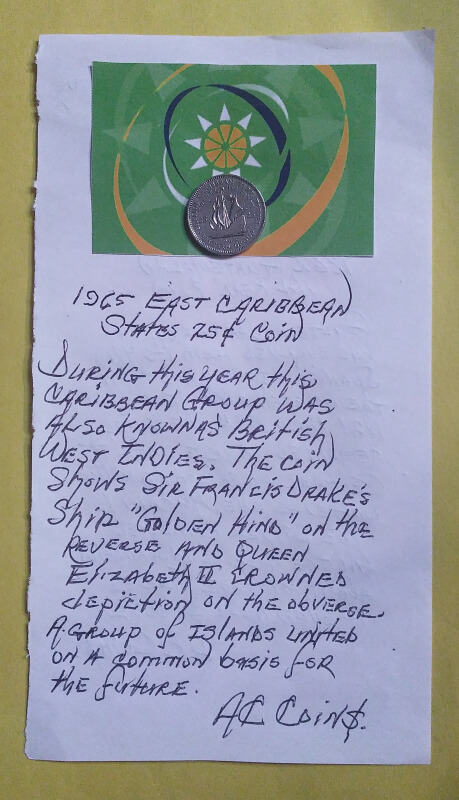 1965 EAST CARIBBEAN
STATES 25¢ COIN
DURING this YEAR this
CARIBBEAN GROUP WAS
ALSO KNOWN AS BRITISH
WEST INDIES. THE COIN
SHOWS SIR FRANCIS DRAKE'S
SHIP "GOLDEN HIND" ON the
REVERSE AND QUEEN
ELIZABETH II CROWNED
depiction ON the obverse.
A GROUP of ISLANDS UNITED
ON A common basis for
the future.
AC COIN$.